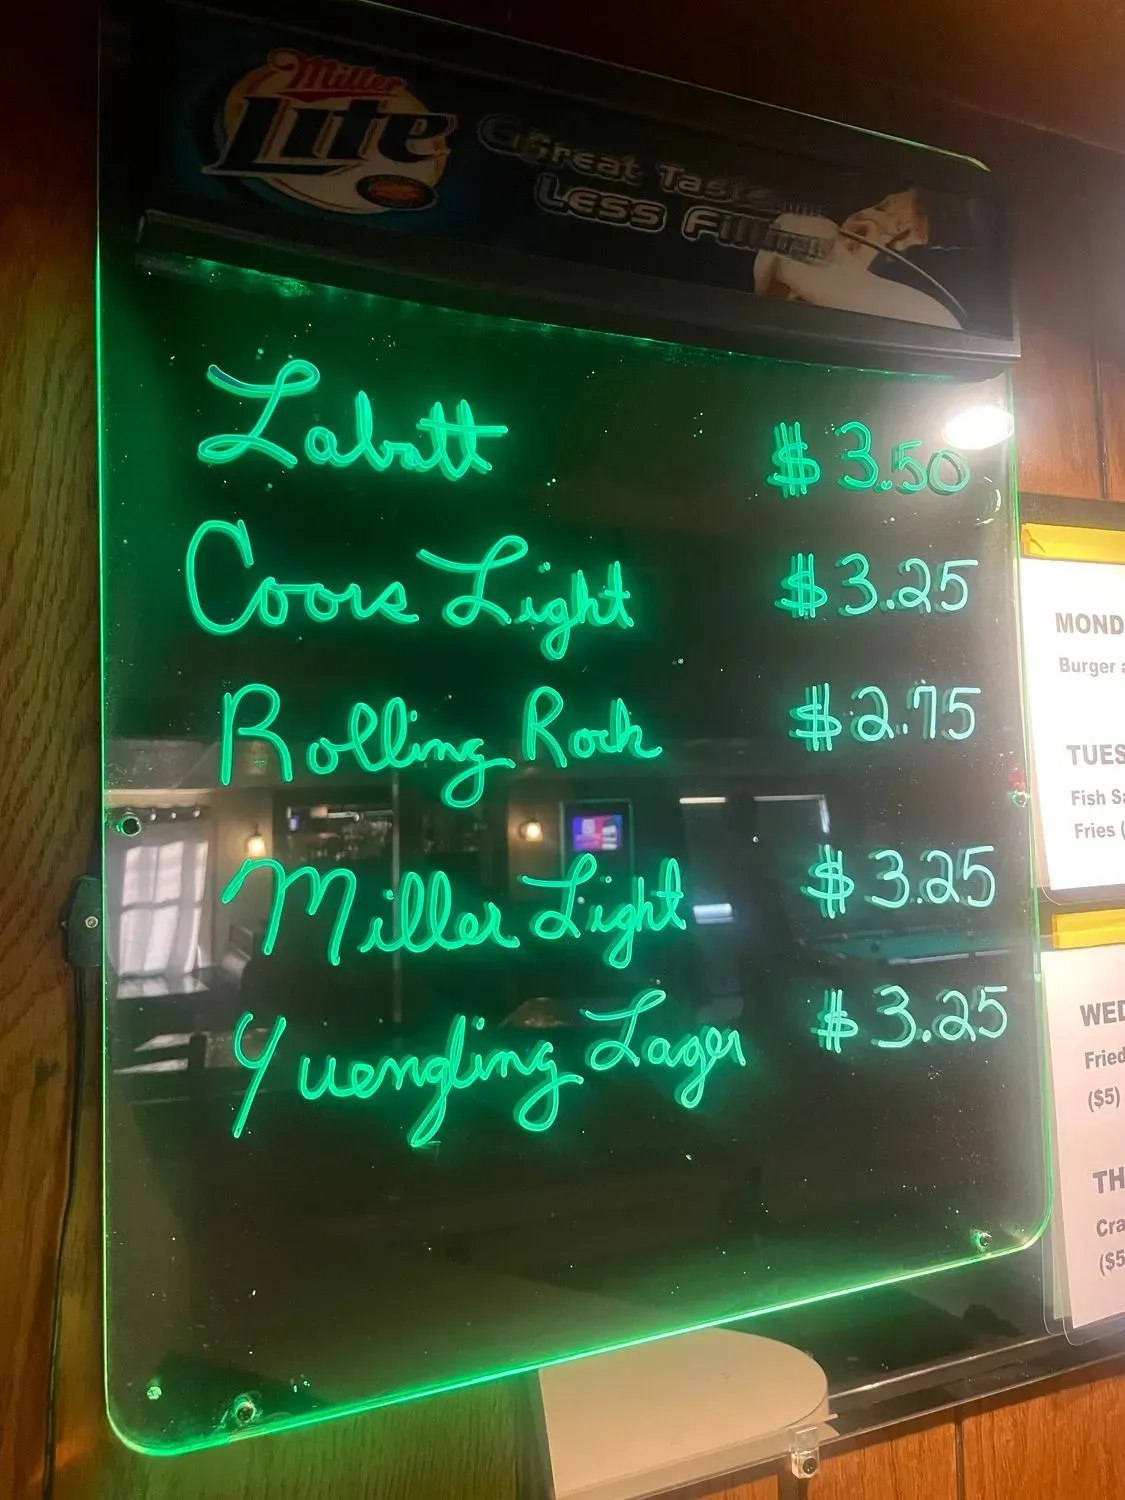 Miller
Lite
Great Taste
Less Filling
Labatt $3.50
Coors Light $3.25
Rolling Rock $2.75
Miller Light $3.25
Yuengling Lager $3.25
MOND
Burger a
TUES
Fish Sa
Fries (
WED
Fried
($5)
TH
Cra
($5